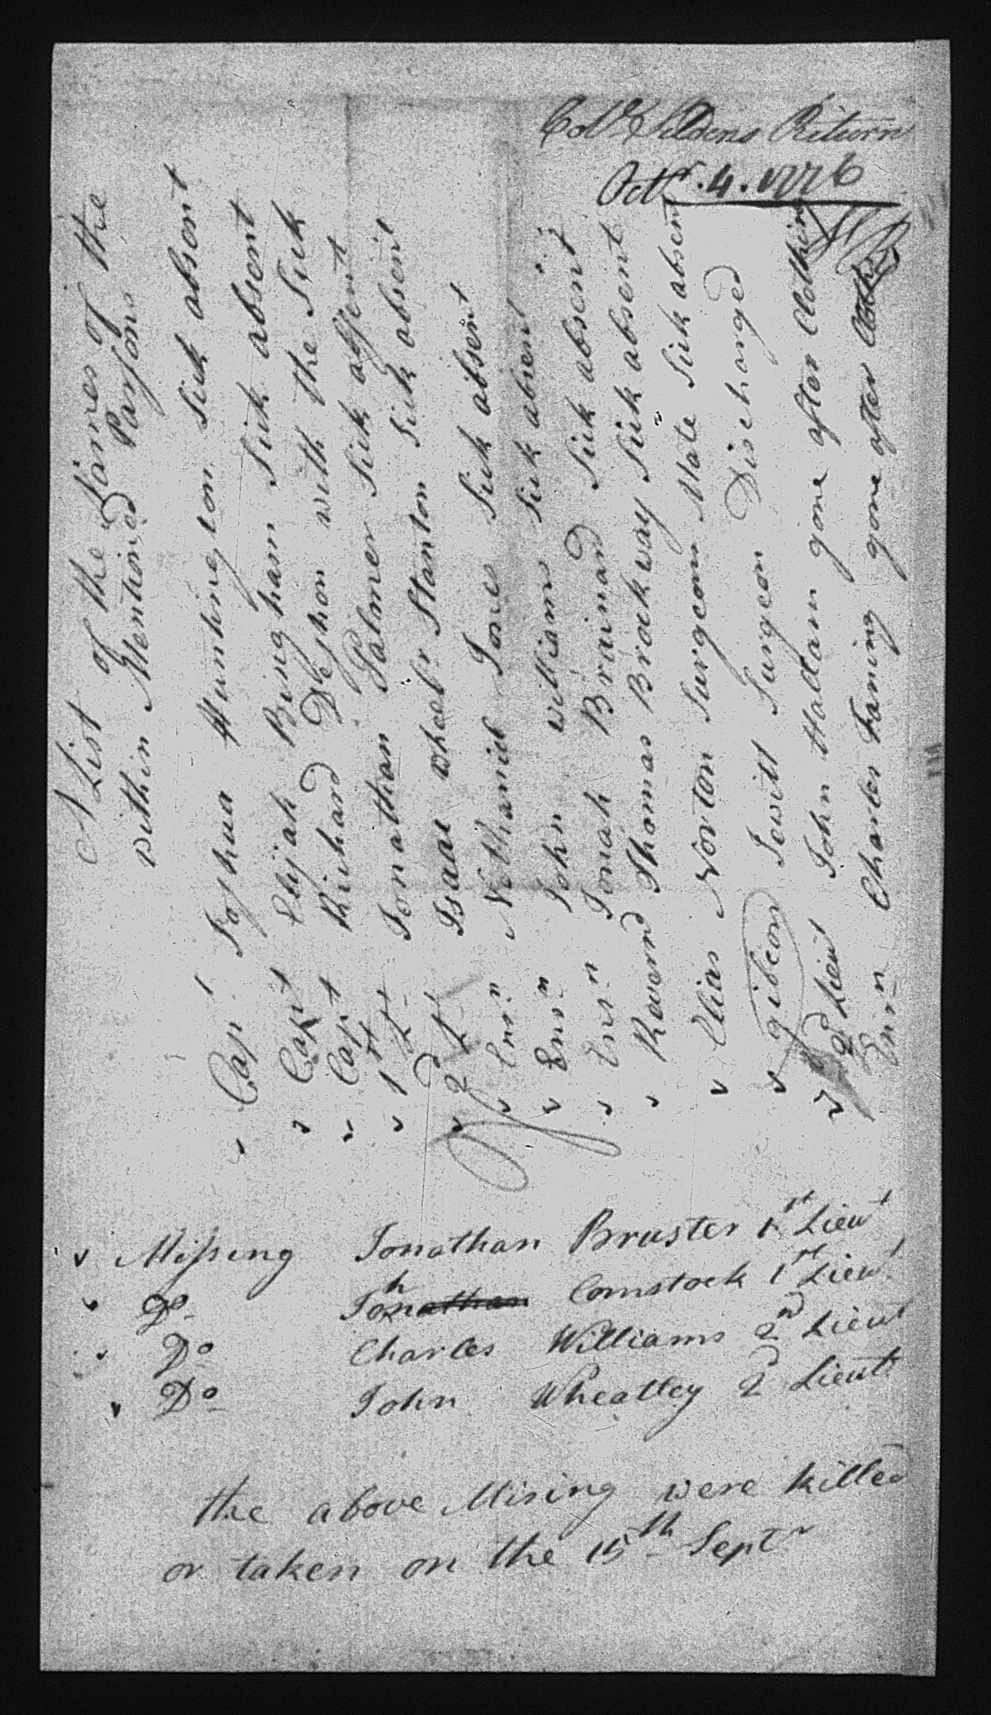 Coll Seldens Return
Octr. 4. 1776
A List of the Names of the
within Mentioned Parsons
Capt Joshua Huntington Sick absont
Capt Elijah Bingham Sick absent
Capt Richard Deshon with the Sick
1st Lt Jonathan Palmer Sick absent
2d Lt Isaac wheelr Stanton Sick absent
Ensn Nathaniel Jones Sick absent
Ensn John williams Sick absent
Ensn Jonah Brainard Sick absent
Reverend Thomas Brockway Sick absent
Elias Norton Surgeon Mate Sick absent
gibeon Jewitt Surgeon Discharged
2d Lieut John Hallam gone after Clothing
Ensn Charles Faning gone after Cloth
Missing Jonathan Bruster 1st Lieut
Do John Comstock 1st Lieut
Do Charles Williams 2nd Lieut
Do John Wheatley 2d Lieut
the above Mising were killed
or taken on the 15th Septr